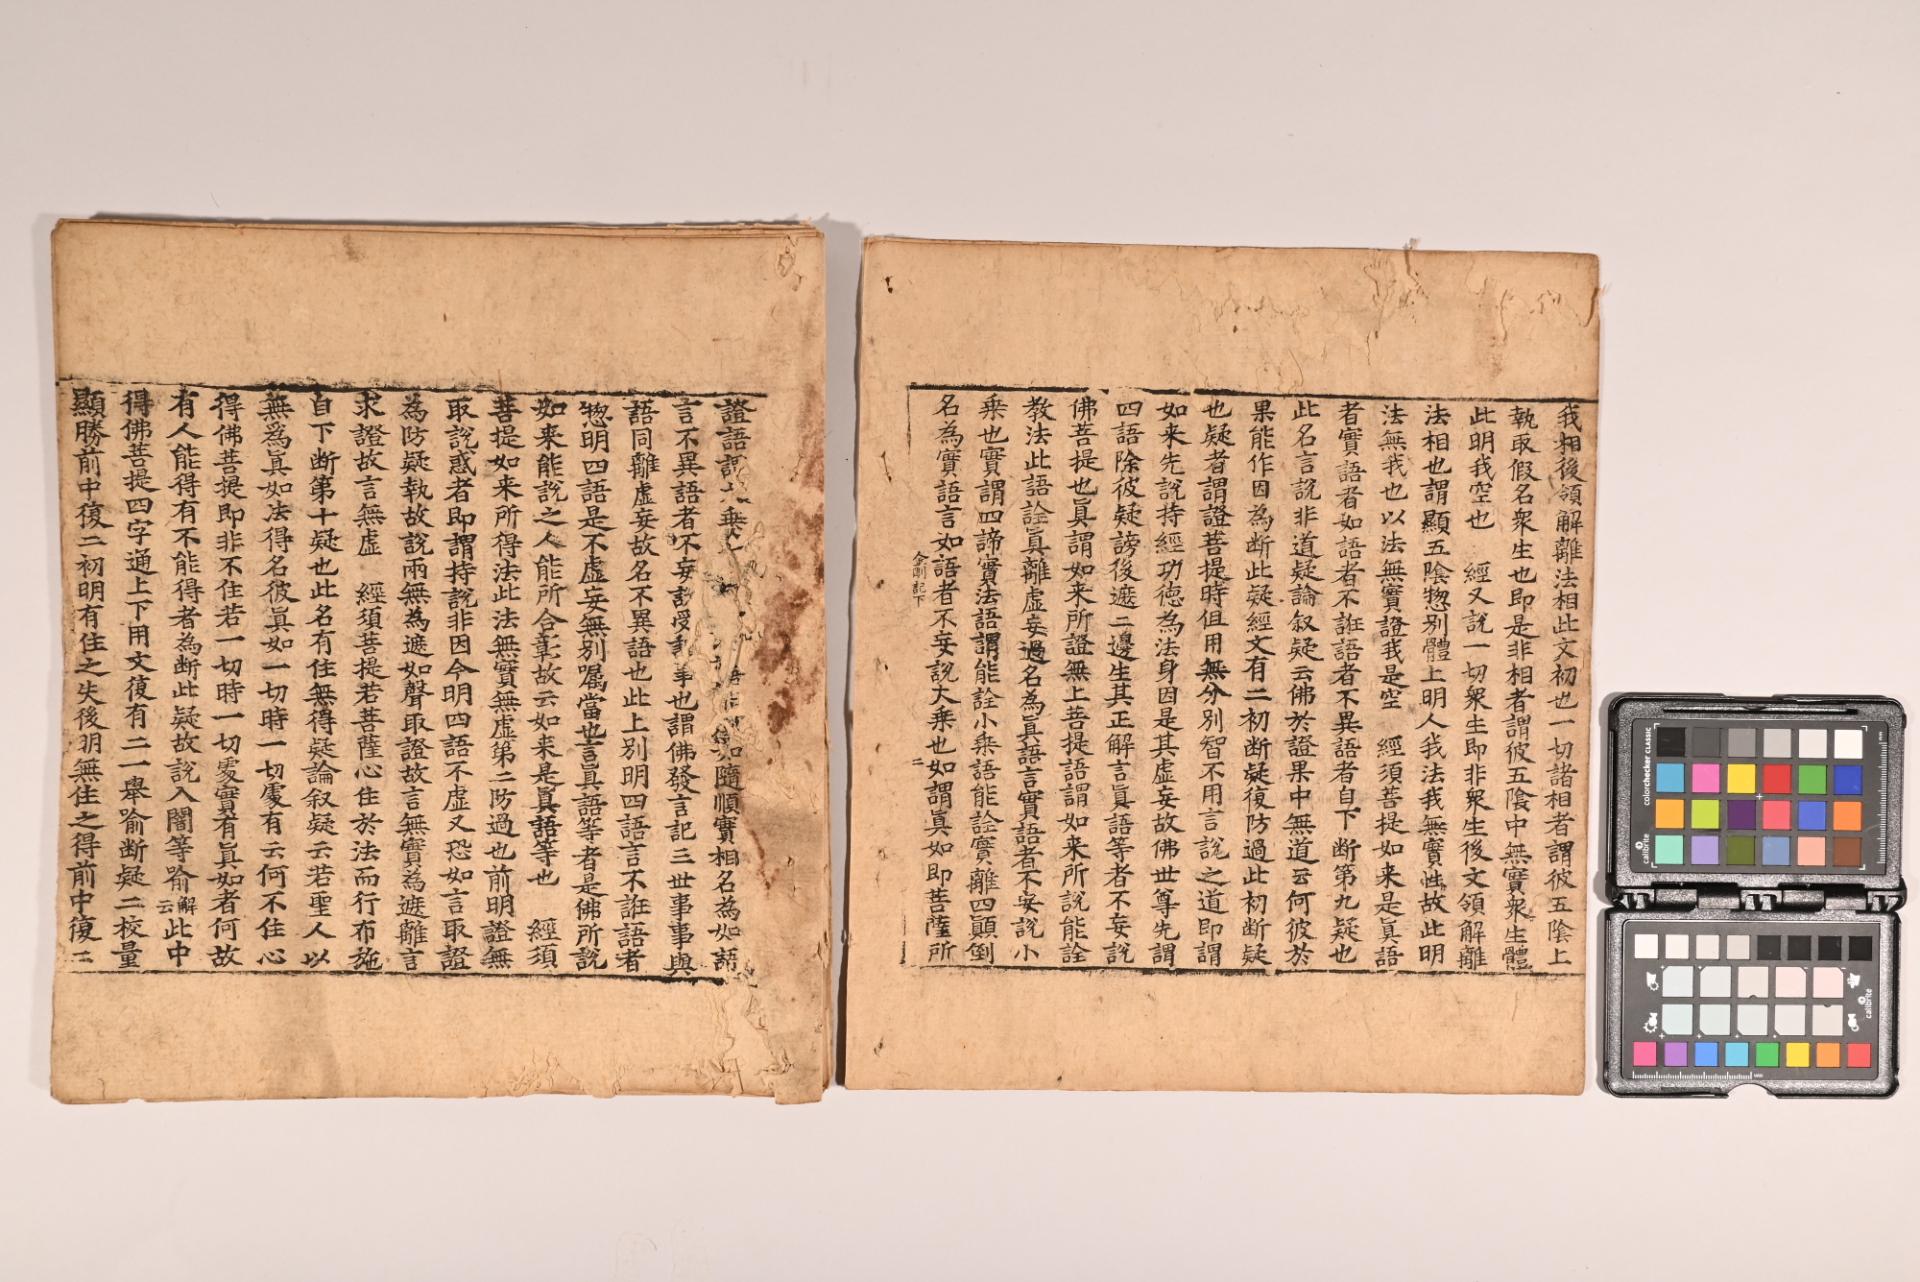 我相後領解離法相此文初也一切諸相者謂彼五陰上
執取假名衆生也即是非相者謂彼五陰中無實衆生體
此明我空也 經又說一切衆生即非衆生後文領解離
法相也謂顯五陰惣別體上明人我法我無實性故此明
法無我也以法無實證我是空 經須菩提如来是真語
者實語者如語者不誑語者不異語者自下断第九疑也
此名言說非道疑論叙疑云佛於證果中無道云何彼於
果能作因為断此疑經文有二初断疑後防過此初断疑
也疑者謂證菩提時但用無分別智不用言說之道即謂
如来先說持經功徳為法身因是其虛妄故佛世尊先謂
四語除彼疑謗後遮二邊生其正解言眞語等者不妄說
佛菩提也眞謂如来所證無上菩提語謂如来所說能詮
教法此語詮眞離虛妄過名為眞語言實語者不妄說小
乗也實謂四諦實法語謂能詮小乗語能詮實離四顚倒
名為實語言如語者不妄說大乗也如謂眞如即菩薩所
金剛記下
二
證語謂大乗隨順實相名為如語
言不異語者不妄說受事也謂佛發言記三世事事與
語同離虛妄故名不異語也此上別明四語言不誑語者
惣明四語是不虛妄無別囑當也言眞語等者是佛所說
如来能說之人能所合彰故云如来是眞語等也 經須
菩提如来所得法此法無實無虛第二防過也前明證無
取說惑者即謂持說非因今明四語不虛又恐如言取證
為防疑執故說兩無為遮如聲取證故言無實為遮離言
求證故言無虛 經須菩提若菩薩心住於法而行布施
自下断第十疑也此名有住無得疑論叙疑云若聖人以
無為眞如法得名彼眞如一切時一切處有云何不住心
得佛菩提即非不住若一切時一切處實有眞如者何故
有人能得有不能得者為断此疑故說入闇等喻解云此中
得佛菩提四字通上下用文復有二一舉喻断疑二校量
顯勝前中復二初明有住之失後明無住之得前中復二